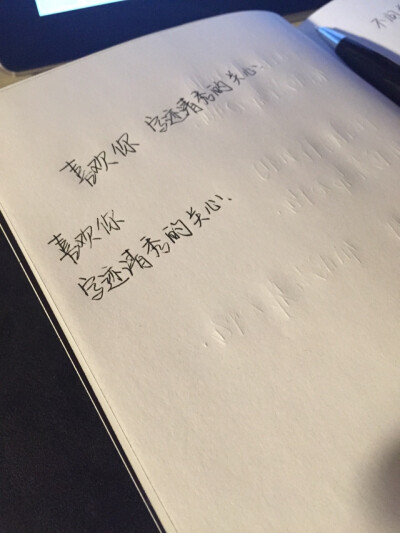 喜欢你 字迹清秀的关心.
喜欢你
字迹清秀的关心.